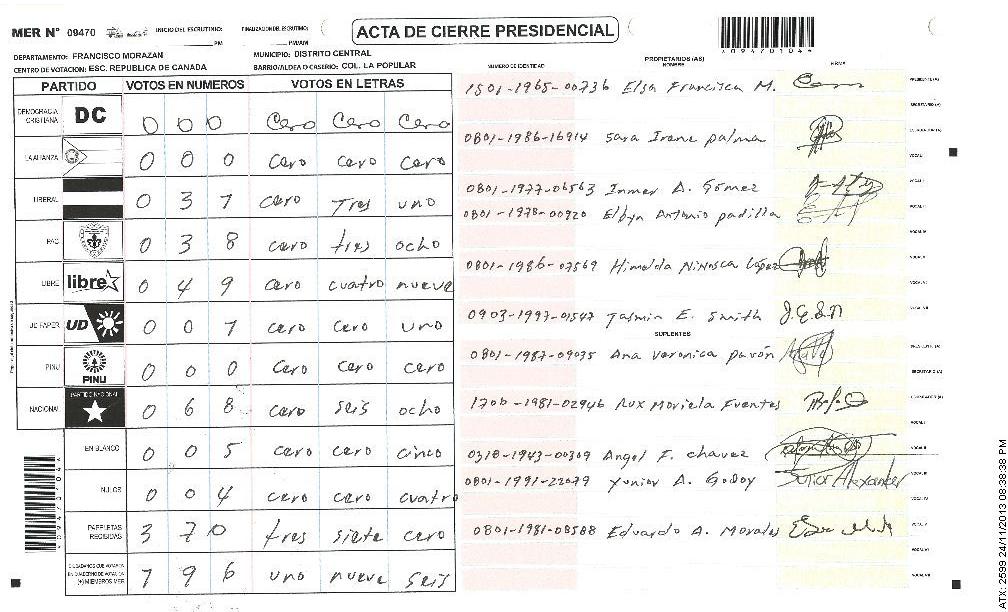 MER N° 09470 INICIO DEL ESCRUTINIO: PM FINALIZACION DEL ESCRUTINIO: PM/AM
ACTA DE CIERRE PRESIDENCIAL
*094701044*
DEPARTAMENTO: FRANCISCO MORAZAN MUNICIPIO: DISTRITO CENTRAL
CENTRO DE VOTACION: ESC. REPUBLICA DE CANADA BARRIO/ALDEA O CASERIO: COL. LA POPULAR
PARTIDO VOTOS EN NUMEROS VOTOS EN LETRAS
DEMOCRACIA CRISTIANA DC 0 0 0 Cero Cero Cero
LA ALIANZA 0 0 0 cero cero cero
LIBERAL 0 3 1 cero Tres uno
PAC 0 3 8 cero tres ocho
LIBRE libre 0 4 9 cero cuatro nueve
UD FAPER UD 0 0 1 cero cero uno
PINU PINU 0 0 0 cero cero cero
NACIONAL PARTIDO NACIONAL 0 6 8 cero seis ocho
EN BLANCO 0 0 5 cero cero cinco
NULOS 0 0 4 cero cero cuatro
PAPELETAS RECIBIDAS 3 7 0 tres siete cero
CIUDADANOS QUE VOTARON EN CUADERNO DE VOTACION (+) MIEMBROS MER 1 9 6 uno nueve seis
PROPIETARIOS (AS)
NUMERO DE IDENTIDAD NOMBRE FIRMA
1501-1965-00736 Elsa Francisca M. PRESIDENTE (A)
SECRETARIO (A)
0801-1986-16914 Sara Irene palma ESCRUTADOR (A)
VOCAL I
0801-1977-06563 Inmer A. Gómez VOCAL II
0801-1978-00920 Elbyn Antonio padilla
VOCAL IV
0801-1986-07569 Himelda Ninosca López VOCAL V
VOCAL VI
0903-1997-01547 Jasmin E. Smith J.E.S.M VOCAL VII
SUPLENTES
0801-1987-09035 Ana veronica pavón PRESIDENTE (A)
SECRETARIO (A)
1706-1981-02946 Rux Mariela Fuentes ESCRUTADOR (A)
VOCAL I
0318-1943-00309 Angel F. chavez VOCAL II
0801-1991-22079 Yunior A. Godoy Junior Alexander VOCAL III
VOCAL IV
0801-1981-08588 Eduardo A. Morales VOCAL V
VOCAL VI
VOCAL VII
*094701044*
ATX: 2599 24/11/2013 08:38:38 PM